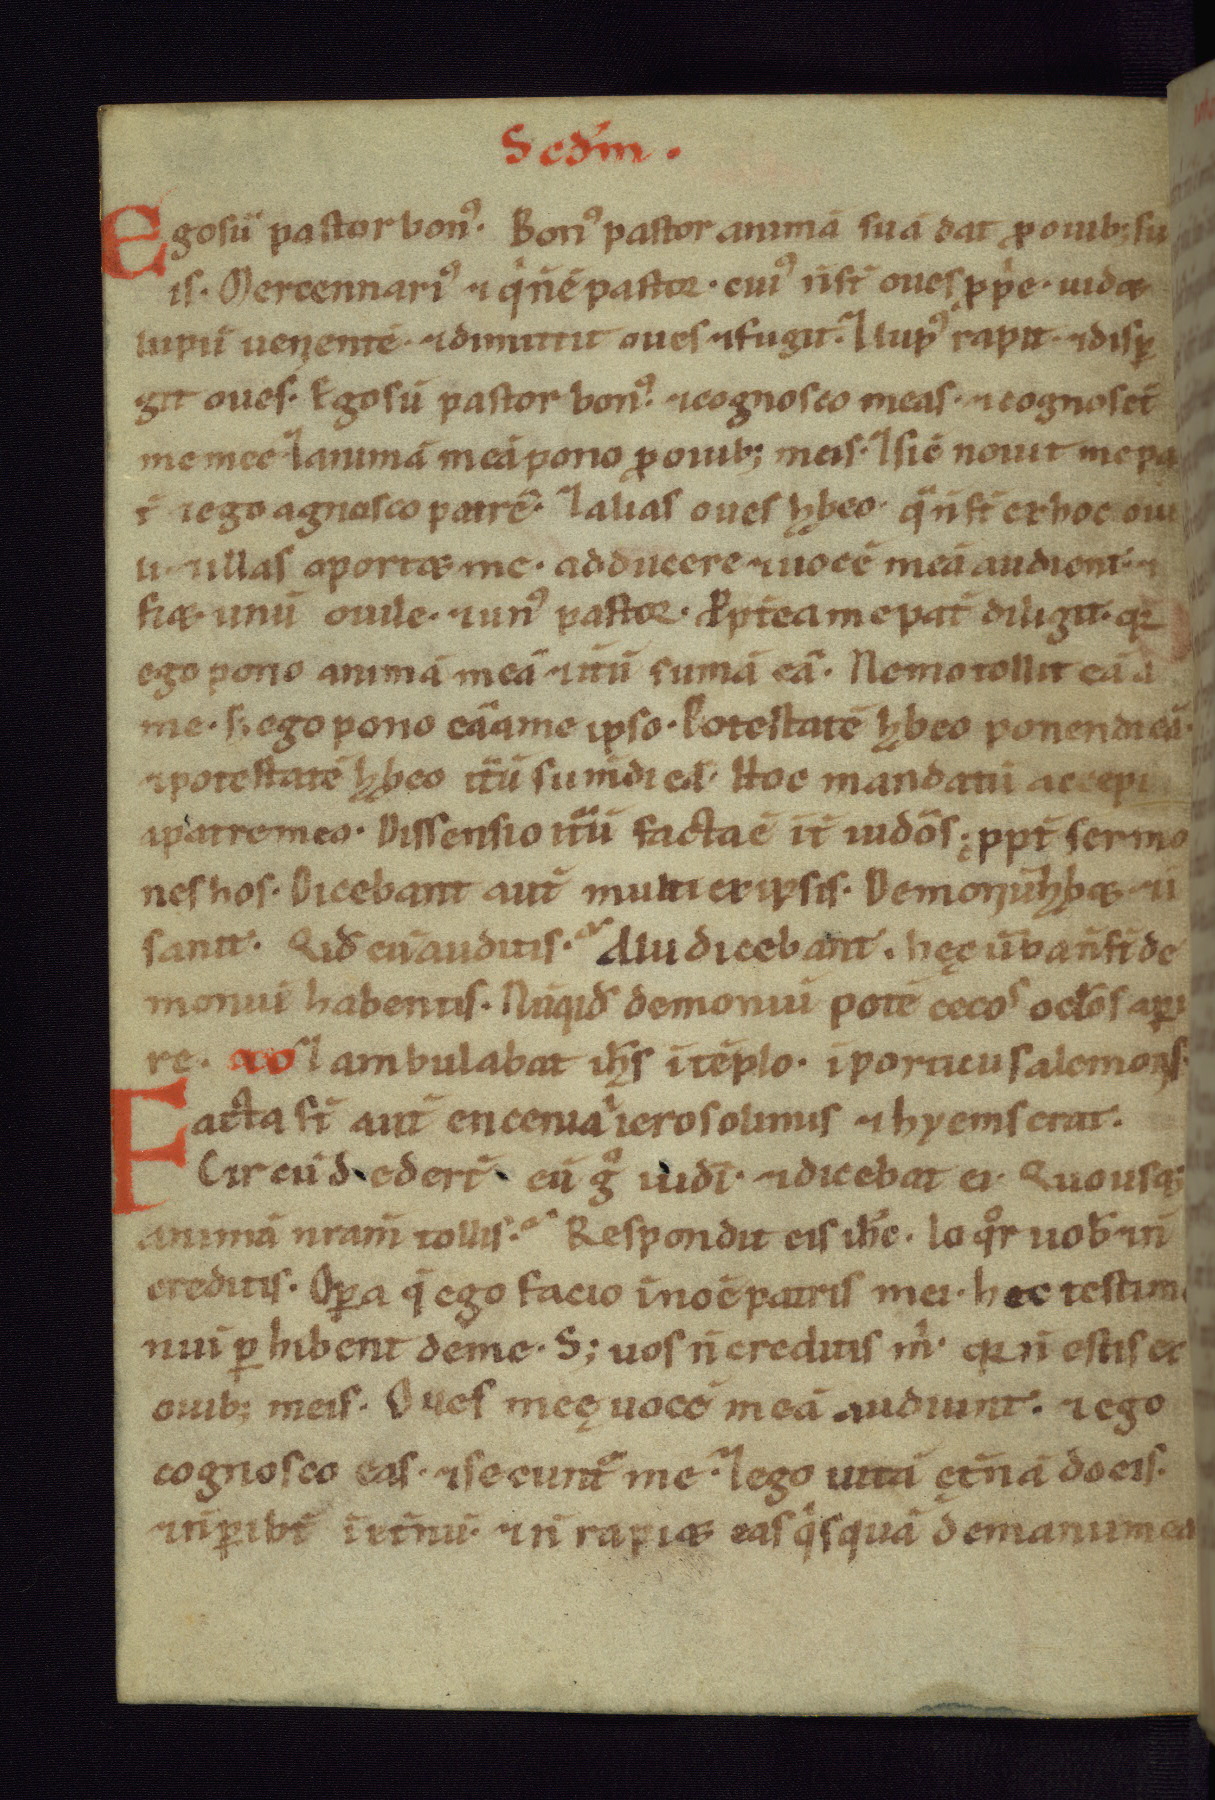 Scd̄m.
Ego sū pastor bonꝰ. Bonꝰ pastor animā suā dat ꝓ ouib; su
is. Mercennariꝰ ⁊ qͥ n̄ ē pastor. cuiꝰ n̄ st̄ oues ꝓpͥe. uidet
lupū uenientē. ⁊ dimittit oues ⁊ fugit. ⁊ lupꝰ rapit. ⁊ disꝑ
git oues. Ego sū pastor bonꝰ. ⁊ cognosco meas. ⁊ cognosct̄
me mee ⁊ animā meā pono ꝓ ouib; meis. ⁊ sic nouit me pa
t̄ ⁊ ego agnosco patrē. ⁊ alias oues hb̄eo. qͣ n̄ st̄ ex hoc oui
li. ⁊ illas oportet me. adducere ⁊ uocē meā audient. ⁊
fiet unū ouile. ⁊ unꝰ pastor. Ꝓpt̄ea me pat̄ diligit. qr
ego pono animā meā ⁊ it̄ū sumā eā. Nemo tollit eā a
me. s; ego pono eā a me ipso. Potestatē hb̄eo ponendi eā.
⁊ potestatē hb̄eo it̄ū sum̄di eā. Hoc mandatū accepi
a patre meo. Dissensio it̄ū facta ē int̄ iudōs; ꝓpt̄ sermo
nes hos. Dicebant aut̄ multi ex ipsis. Demoniū hb̄et ⁊ in
sanit. Qid eū auditis. Alii dicebant. hęc ūba n̄ st̄ de
moniū habentis. Nūqid demoniū potē cecoꝝ oclōs aꝑi
re. ⁊ ambulabat ih̄s ī tēplo. ī porticu salemonis.
Facta st̄ aut̄ encenia ī ierosolimis ⁊ hyems erat.
Circūdedert̄ eū gͦ iudī. ⁊ dicebat ei. Quousq;
animā nram̄ tollis. Respondit eis ih̄c. loqͦr uob̄ ⁊ n̄
creditis. Oꝑa q̄ ego facio ī noē patris mei. hec testimo
niū ꝑhibent de me. S; uos n̄ creditis m̄. qr n̄ estis ex
ouib; meis. Oues meę uocē meā audiunt. ⁊ ego
cognosco eas. ⁊ secunt̄ me. ⁊ ego uitā ęt̄nā do eis.
⁊ n̄ ꝑibt̄ ī et̄nū. ⁊ n̄ rapiet eas qͥsquā de manu mea